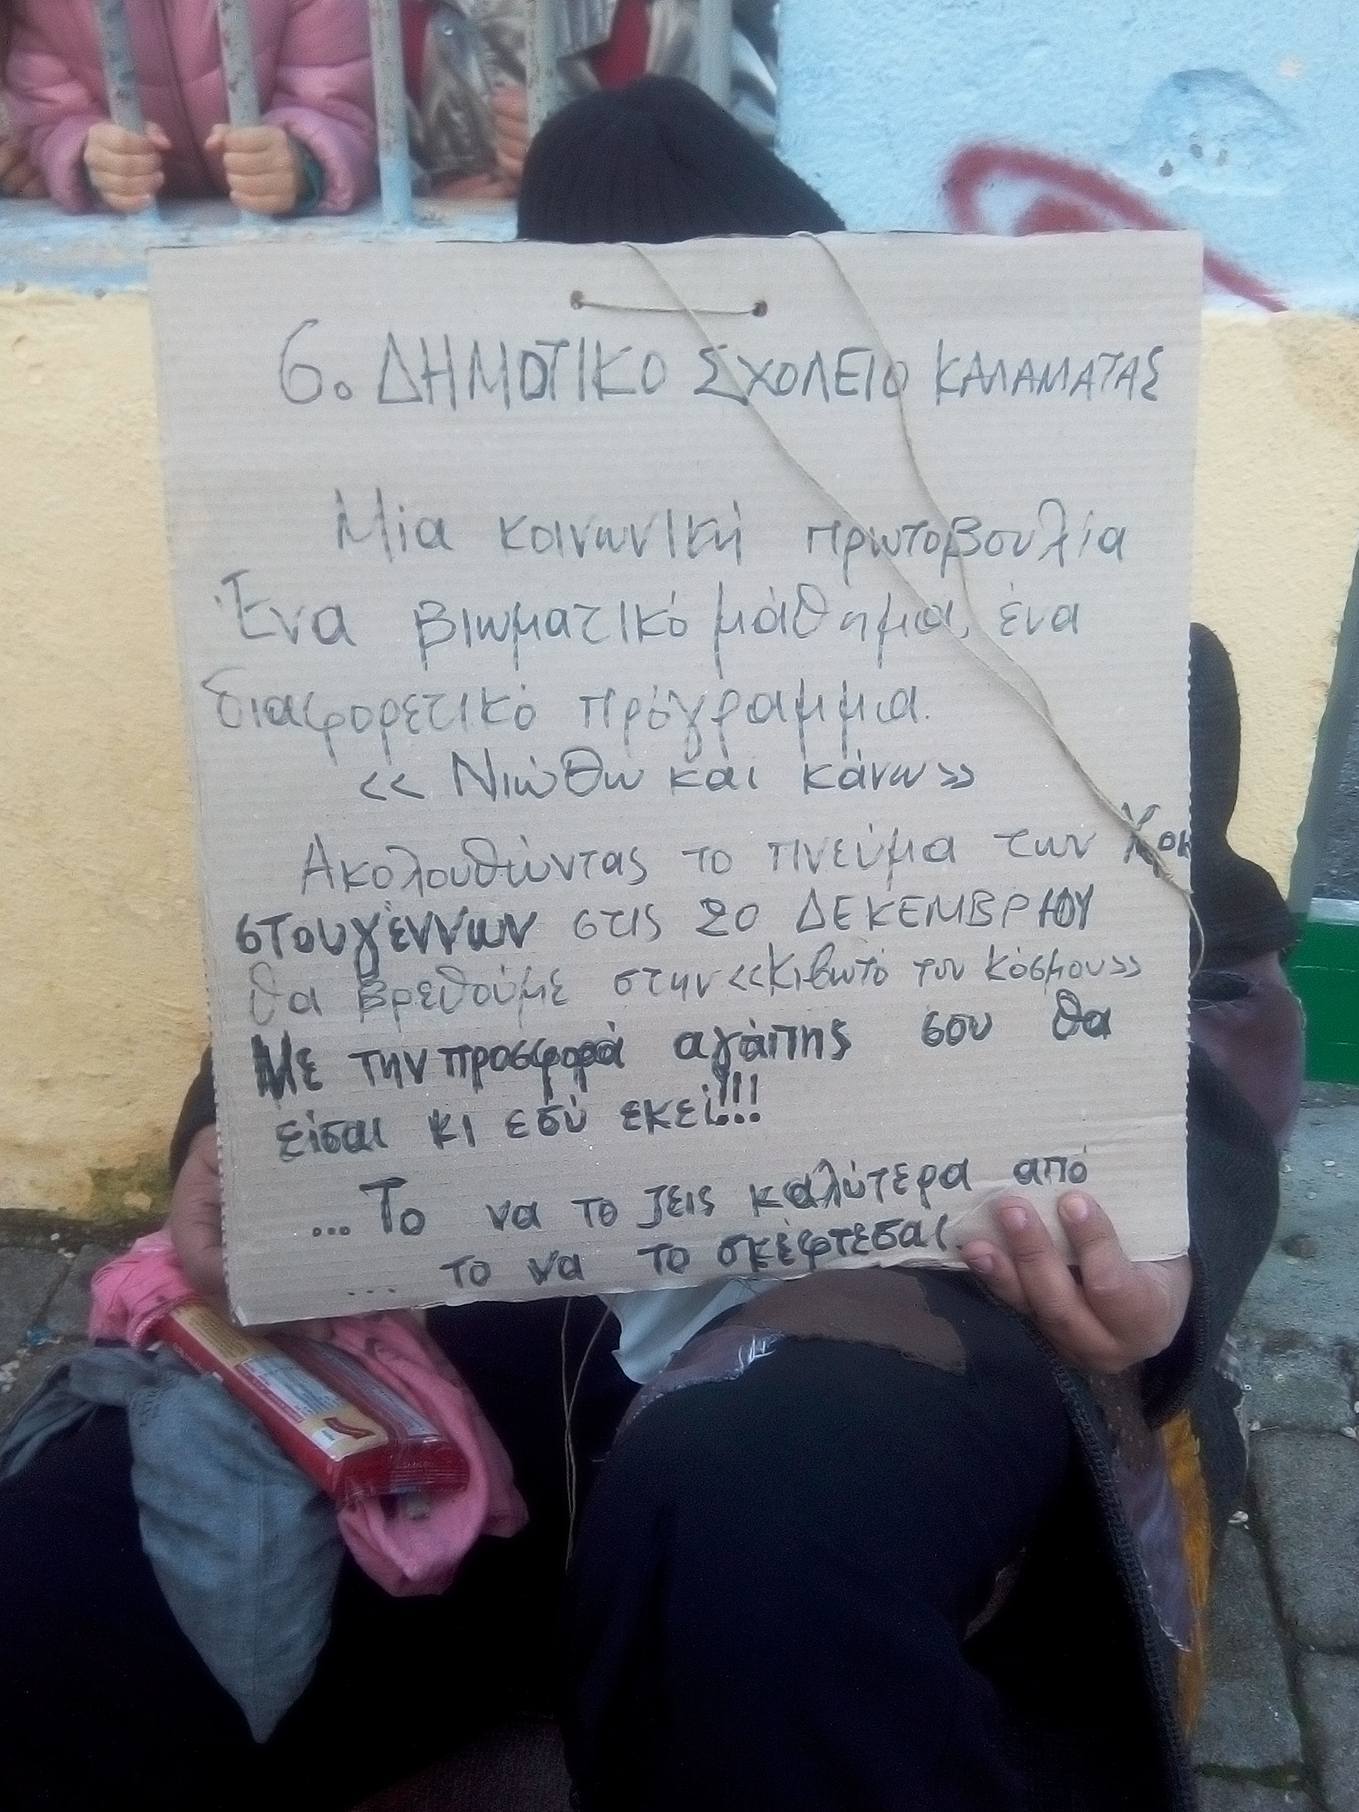 6ο ΔΗΜΟΤΙΚΟ ΣΧΟΛΕΙΟ ΚΑΛΑΜΑΤΑΣ
Μία κοινωνική πρωτοβουλία
Ένα βιωματικό μάθημα, ένα
διαφορετικό πρόγραμμα.
<< Νιώθω και κάνω >>
Ακολουθώντας το πνεύμα των
στουγέννων στις 20 ΔΕΚΕΜΒΡΙΟΥ
θα βρεθούμε στην <<Κιβωτό του Κόσμου>>
Με την προσφορά αγάπης σου θα
είσαι κι εσύ εκεί!!!
... Το να το ζεις καλύτερα από
... το να το σκέφτεσαι.